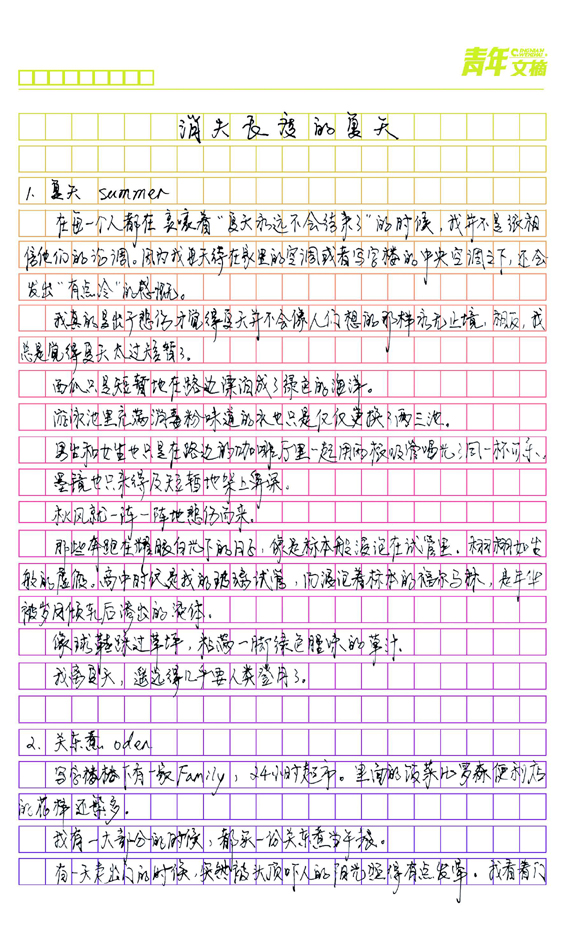 青年文摘
消失长度的夏天
1. 夏天 summer
在每一个人都在哀嚎着“夏天永远不会结束了”的时候，我并不是很相
信他们的论调。因为我每天待在家里的空调或者写字楼的中央空调之下，还会
发出“有点冷”的感慨。
我真的是出于悲伤才觉得夏天并不会像人们想的那样永无止境，相反，我
总是觉得夏天太过短暂了。
西瓜只是短暂地在路边漂泊成了绿色的海洋。
游泳池里充满消毒粉味道的水也只是仅仅更换了两三池。
男生和女生也只是在路边的咖啡厅里一起用两根吸管喝光了同一杯可乐。
墨镜也只来得及短暂地架上鼻梁。
秋风就一阵一阵地悲伤而来。
那些奔跑在耀眼白光下的日子，像是标本般浸泡在试管里，栩栩如生
般的虚假。高中时代是我的玻璃试管，而浸泡着标本的福尔马林，是年华
被岁月倾轧后渗出的液体。
像球鞋踩过草坪，粘满一脚绿色腥味的草汁。
我离夏天，遥远得几乎要人类登月了。
2. 关东煮 oden
写字楼楼下有一家Family，24小时超市。里面的饭菜比罗森便利店
的花样还繁多。
我有一大部分的时候，都买一份关东煮当午餐。
有一天走出门的时候，突然被头顶吓人的阳光照得有点发晕。我看着门